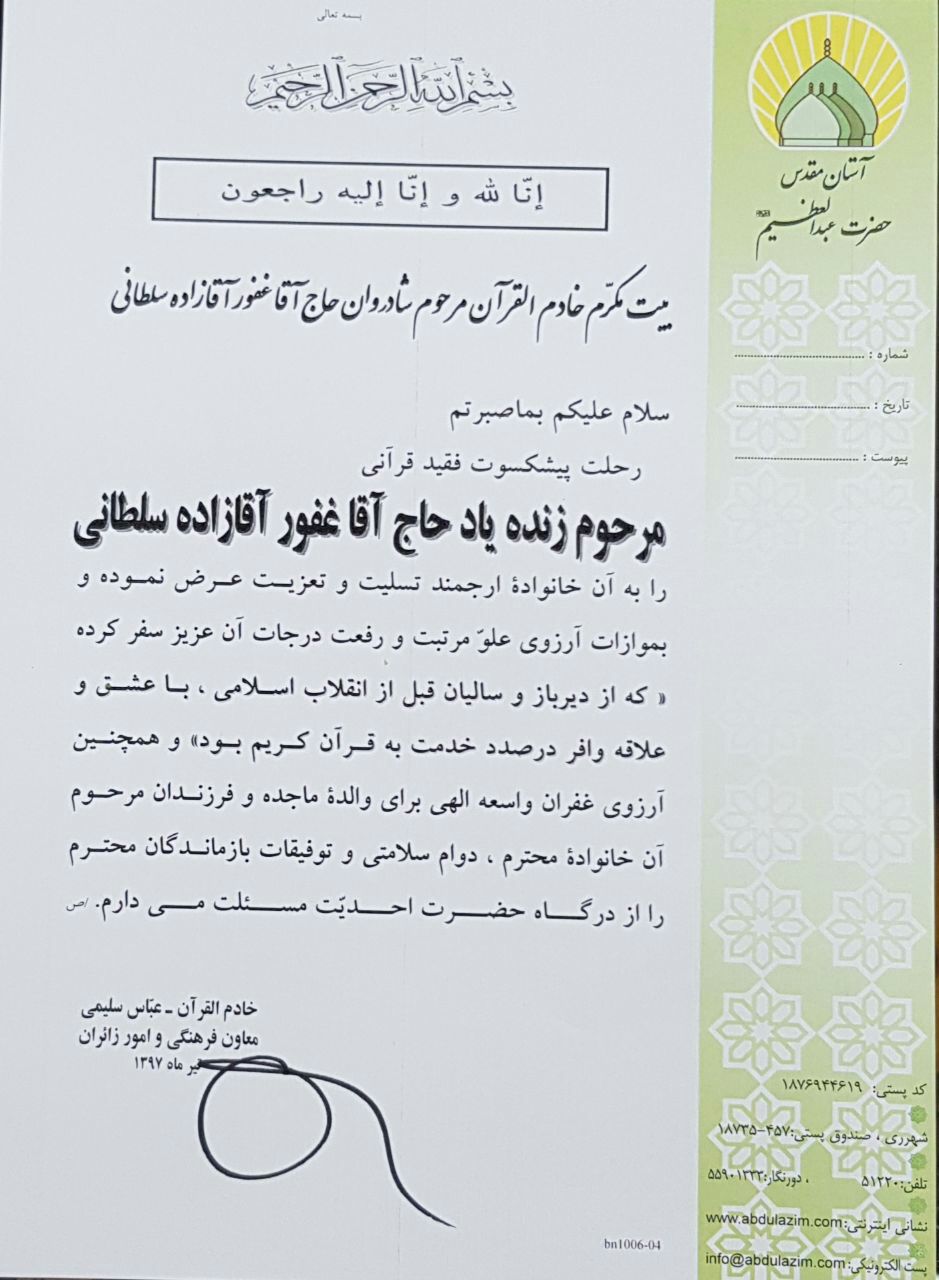 بسمه تعالی
بسم الله الرحمن الرحیم
إنّا لله و إنّا إلیه راجعون
بیت مکرّم خادم القرآن مرحوم شادروان حاج آقا غفور آقازاده سلطانی
سلام علیکم بماصبرتم
رحلت پیشکسوت فقید قرآنی
مرحوم زنده یاد حاج آقا غفور آقازاده سلطانی
را به آن خانوادهٔ ارجمند تسلیت و تعزیت عرض نموده و
بموازات آرزوی علوّ مرتبت و رفعت درجات آن عزیز سفر کرده
« که از دیرباز و سالیان قبل از انقلاب اسلامی ، با عشق و
علاقه وافر درصدد خدمت به قرآن کریم بود» و همچنین
آرزوی غفران واسعه الهی برای والدهٔ ماجده و فرزندان مرحوم
آن خانوادهٔ محترم ، دوام سلامتی و توفیقات بازماندگان محترم
را از درگاه حضرت احدیّت مسئلت می دارم. /ص
خادم القرآن ـ عبّاس سلیمی
معاون فرهنگی و امور زائران
تیر ماه ۱۳۹۷
bn1006-04
آستان مقدس
حضرت عبدالعظیم
شماره : ........................................
تاریخ : ........................................
پیوست : ........................................
کد پستی: ۱۸۷۶۹۴۴۶۱۹
شهرری ، صندوق پستی:۴۵۷-۱۸۷۳۵
تلفن:۵۱۲۲۰ ، دورنگار:۵۵۹۰۱۳۳۳
نشانی اینترنتی:www.abdulazim.com
پست الکترونیکی:info@abdulazim.com